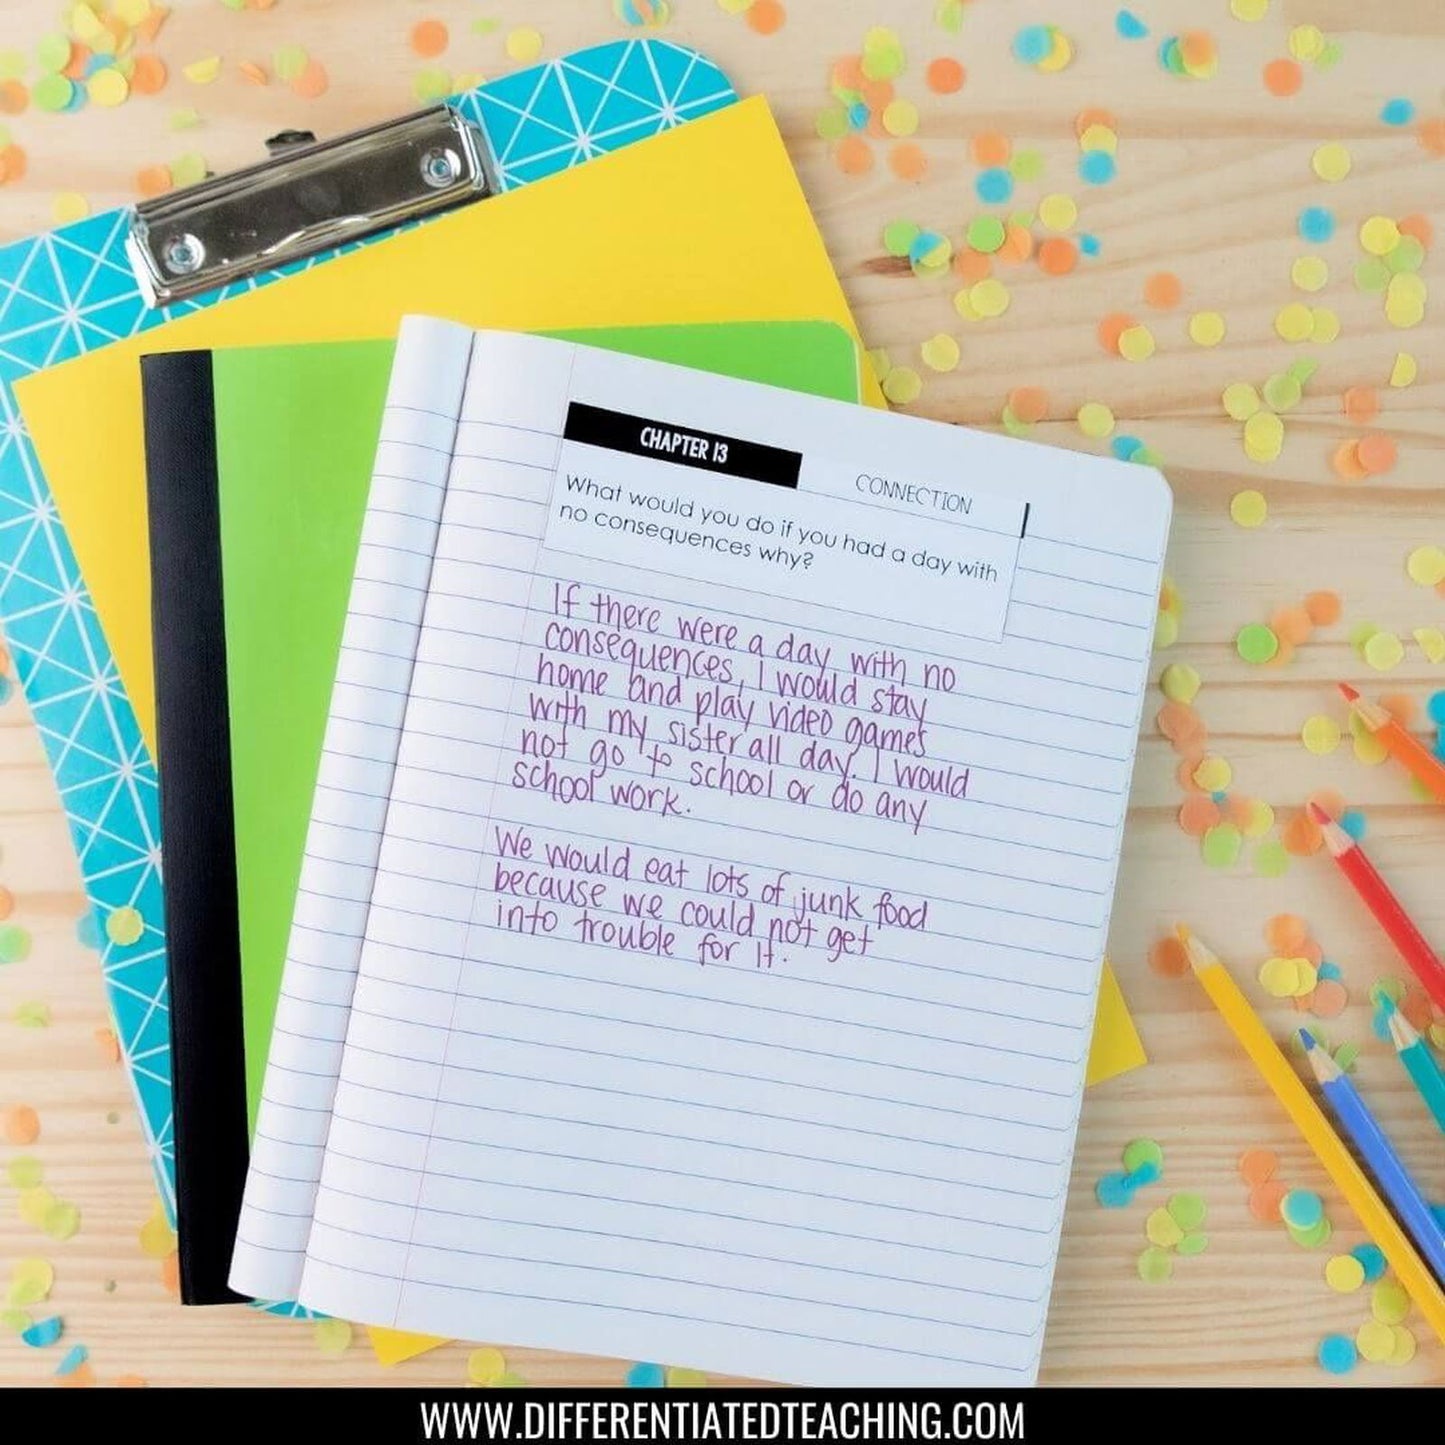 CHAPTER 13
CONNECTION
What would you do if you had a day with
no consequences why?
If there were a day with no
consequences, I would stay
home and play video games
with my sister all day. I would
not go to school or do any
school work.
We would eat lots of junk food
because we could not get
into trouble for it.
WWW.DIFFERENTIATEDTEACHING.COM